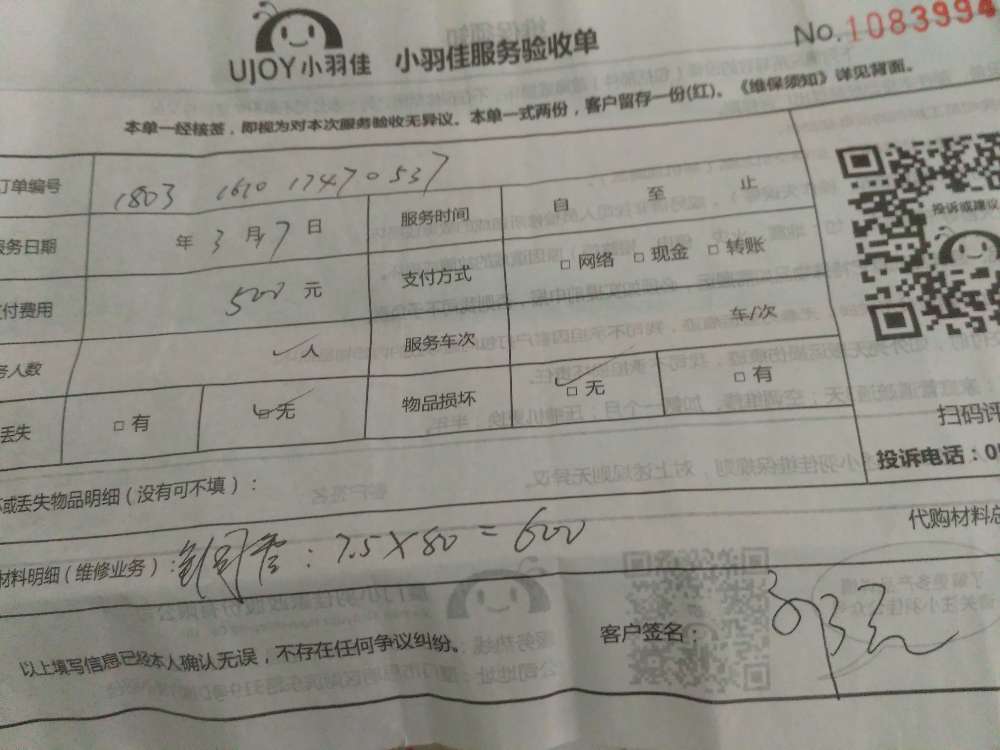 UJOY小羽佳 小羽佳服务验收单
No.1083994
本单一经核签，即视为对本次服务验收无异议。本单一式两份，客户留存一份(红)。《维保须知》详见背面。
订单编号 1803 1610 17470537
服务日期 年 3 月 7 日 服务时间 自 至 止
支付费用 500 元 支付方式 □ 网络 □ 现金 □ 转账
务人数 人 服务车次 车/次
丢失 □ 有 □ 无 物品损坏 □ 无 □ 有
投诉或建议
扫码评
投诉电话：0
坏或丢失物品明细（没有可不填）：
代购材料总
材料明细（维修业务）： 铜管：7.5×80=600
以上填写信息已经本人确认无误，不存在任何争议纠纷。
客户签名：